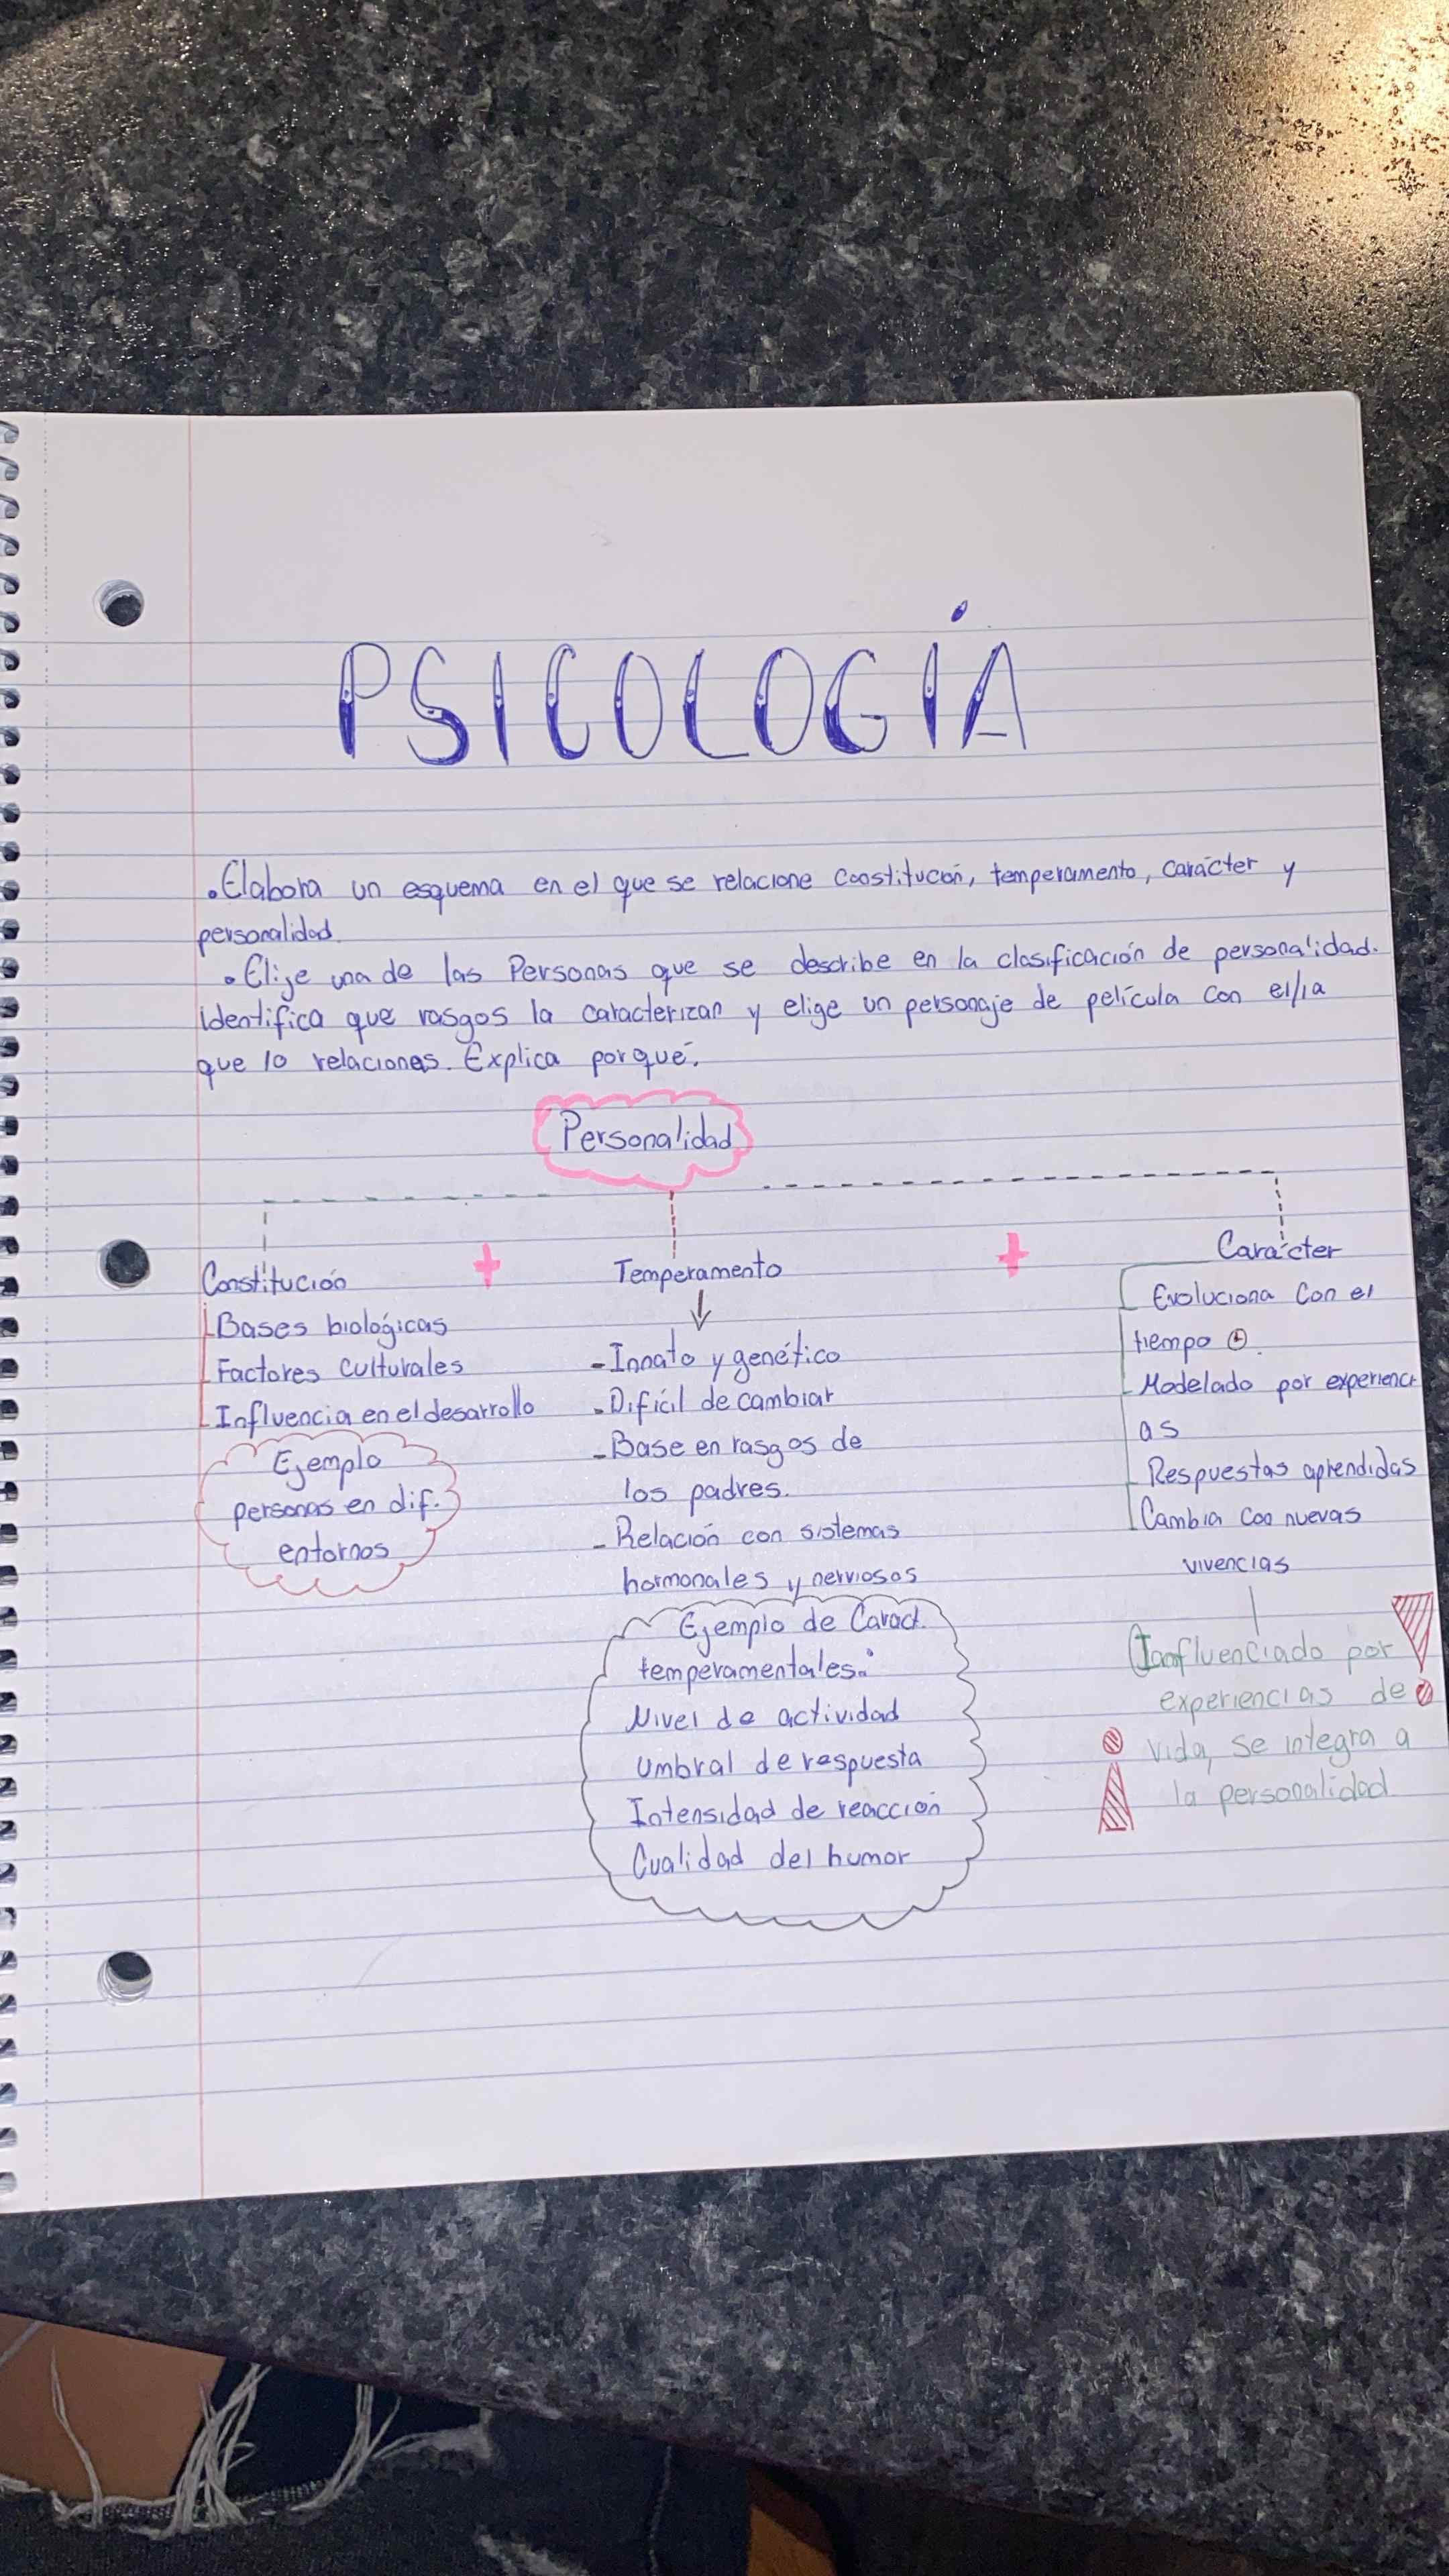 PSICOLOGÍA
• Elabora un esquema en el que se relacione Constitución, temperamento, carácter y
personalidad.
• Elije una de las Personas que se describe en la clasificación de personalidad.
identifica que rasgos la caracterizan y elige un personaje de película con el/la
que lo relaciones. Explica porqué.
Personalidad
Constitución + Temperamento + Carácter
Bases biológicas
Factores culturales
Influencia en el desarrollo
Ejemplo
personas en dif.
entornos
- Innato y genético
- Difícil de cambiar
- Base en rasgos de
los padres.
- Relación con sistemas
hormonales y nerviosos
Ejemplo de Caract.
temperamentales:
Nivel de actividad
Umbral de respuesta
Intensidad de reacción
Cualidad del humor
Evoluciona Con el
tiempo
Modelado por experienci
as
Respuestas aprendidas
Cambia con nuevas
vivencias
¡Influenciado por
experiencias de
vida, se integra a
la personalidad!